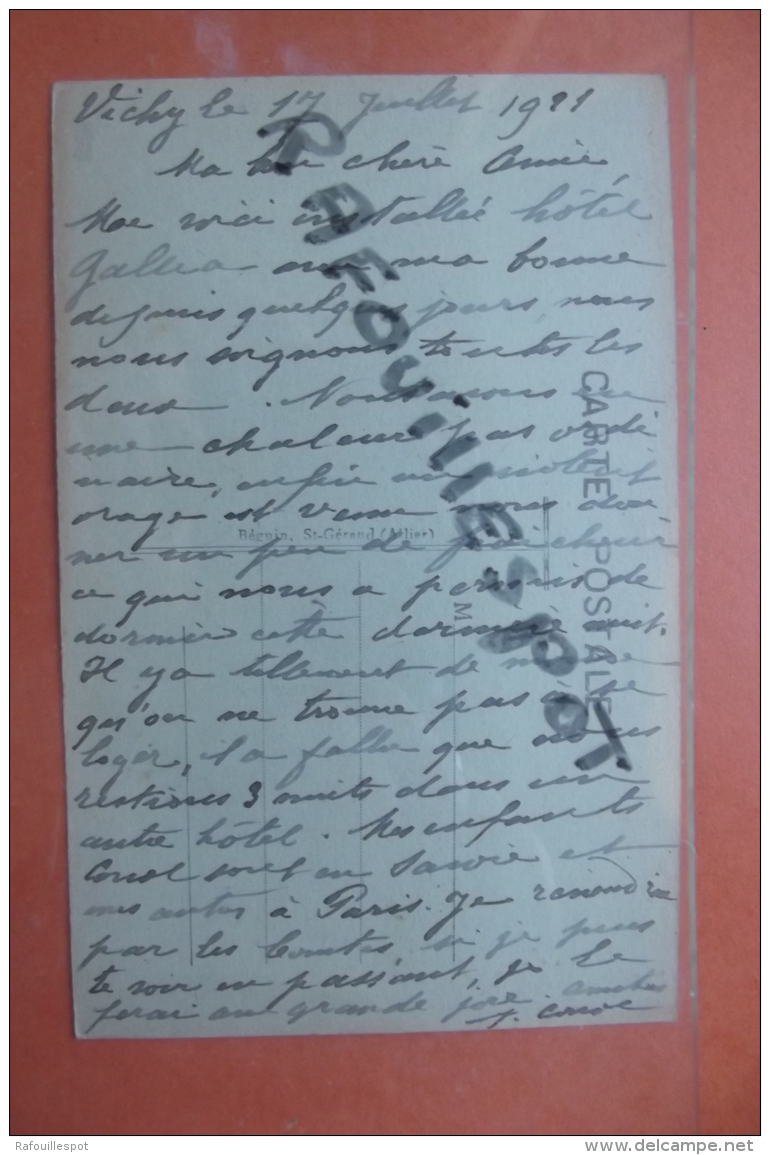 Vichy le 17 Juillet 1921
Ma chère Amie,
Me voici installée hôtel
Gallia avec ma bonne
depuis quelques jours, nous
nous soignons toutes les
deux. Nous avons eu
une chaleur pas ordi
naire, enfin un violent
orage est venu nous don
ner un peu de fraicheur
ce qui nous a permis de
dormir cette dernière nuit.
Il y a tellement de monde
qu'on ne trouve pas à se
loger, il a fallu que nous
restions 3 nuits dans un
autre hôtel. Mes enfants
sont en Savoie et
mes autres à Paris. Je reviendrai
par les si je puis
te voir en passant, je le
ferai avec grande joie. amitiés
CARTE POSTALE
Béguin, St-Gérand (Allier)
M
RAFOUILLESPOT
Rafouillespot
www.delcampe.net